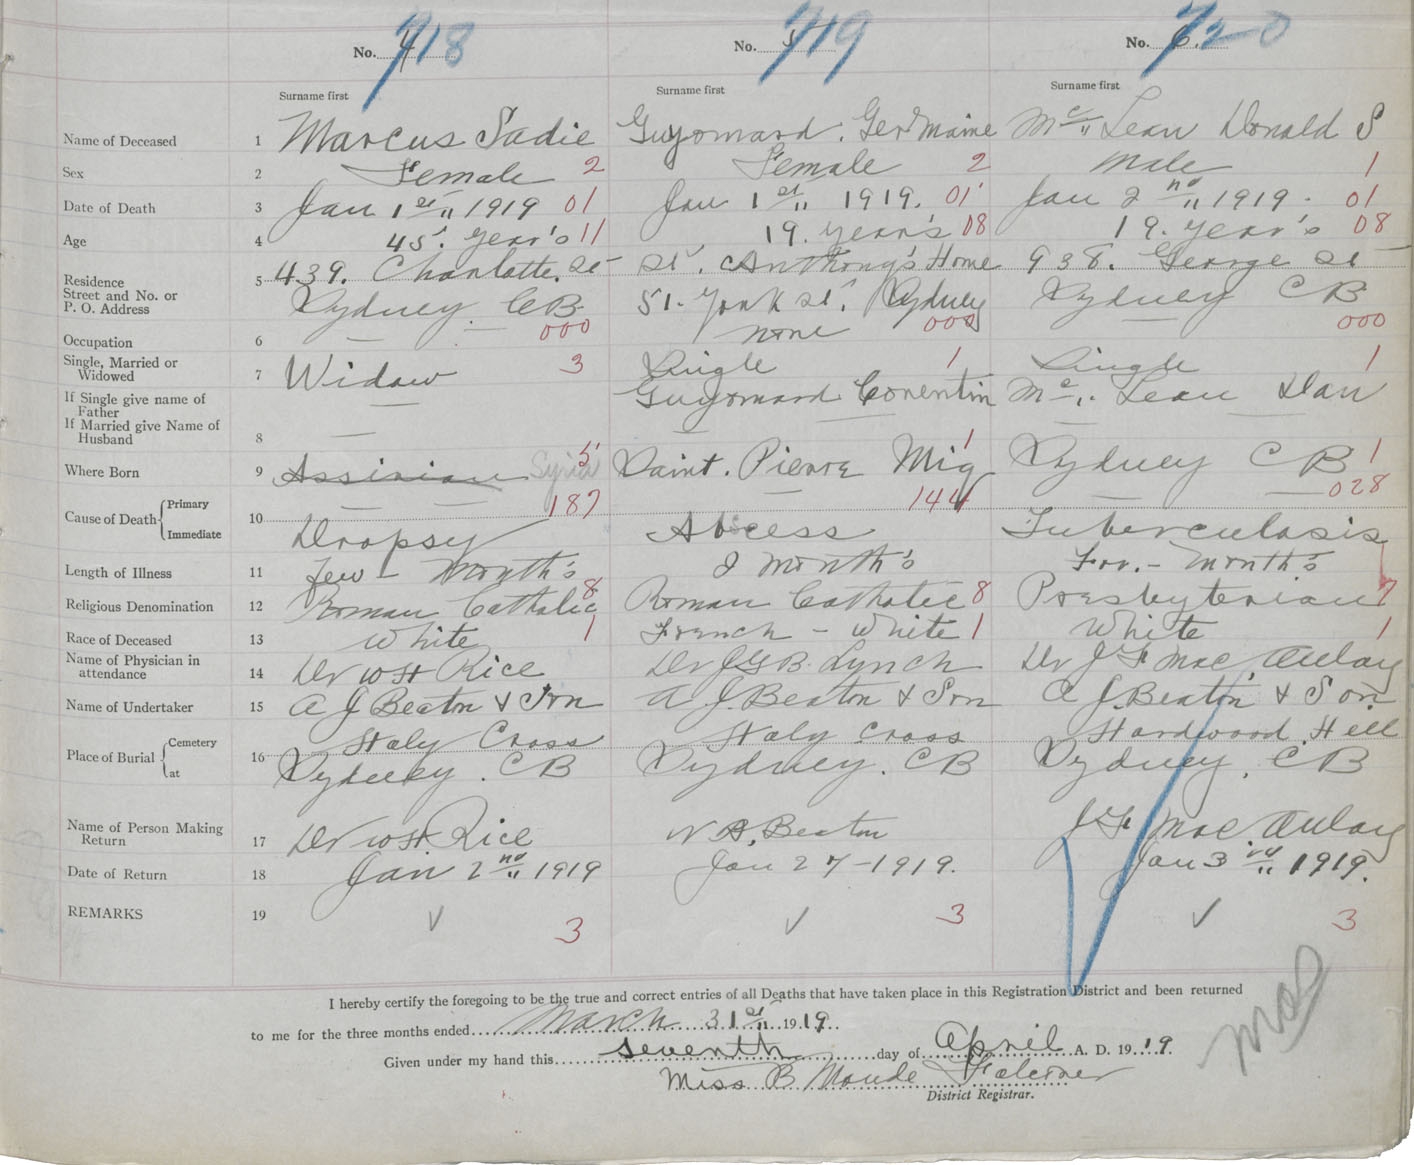 No. 4 718 No. 5 719 No. 6. 720
Surname first Surname first Surname first
Name of Deceased 1 Marcus Sadie Guyomard. Germaine Mc Lean Donald S
Sex 2 Female 2 Female 2 Male 1
Date of Death 3 Jan 1st 1919 01 Jan 1st 1919. 01 Jan 2nd 1919. 01
Age 4 45. Year's 11 19. Year's 08 19. Year's 08
Residence
Street and No. or
P. O. Address
5 439. Charlotte. St St. Anthony's Home 938. George St
Sydney. CB 51. York St. Sydney Sydney CB
Occupation 6 — 000 none 000 — 000
Single, Married or
Widowed
7 Widow 3 Single 1 Single 1
If Single give name of
Father
If Married give Name of
Husband
8 — Guyomard Corentin Mc. Lean Dan
Where Born 9 Assirian Syria 5 Saint. Pierre Miq 1 Sydney CB 1
Cause of Death Primary 10 — 187 — 144 — 028
Immediate Dropsy Abcess Tuberculosis
Length of Illness 11 few - Month's 2 Month's For. - Month's
Religious Denomination 12 Roman Catholic 8 Roman Catholic 8 Presbyterian 7
Race of Deceased 13 White 1 French - White 1 White 1
Name of Physician in
attendance
14 Dr W H Rice Dr J G B. Lynch Dr J F Mac Aulay
Name of Undertaker 15 A J Beaton & Son A J. Beaton & Son A J. Beaton & Son
Place of Burial Cemetery 16 Holy Cross Holy Cross Hardwood Hill
at Sydney. CB Sydney. CB Sydney. CB
Name of Person Making
Return
17 Dr W H. Rice N A. Beaton J F Mac Aulay
Date of Return 18 Jan 2nd 1919 Jan 27-1919. Jan 3rd 1919.
REMARKS 19 3 3 3
I hereby certify the foregoing to be the true and correct entries of all Deaths that have taken place in this Registration District and been returned
to me for the three months ended March 31st 1919.
Given under my hand this seventh day of April A. D. 1919.
Miss B Maude Falconer
District Registrar.